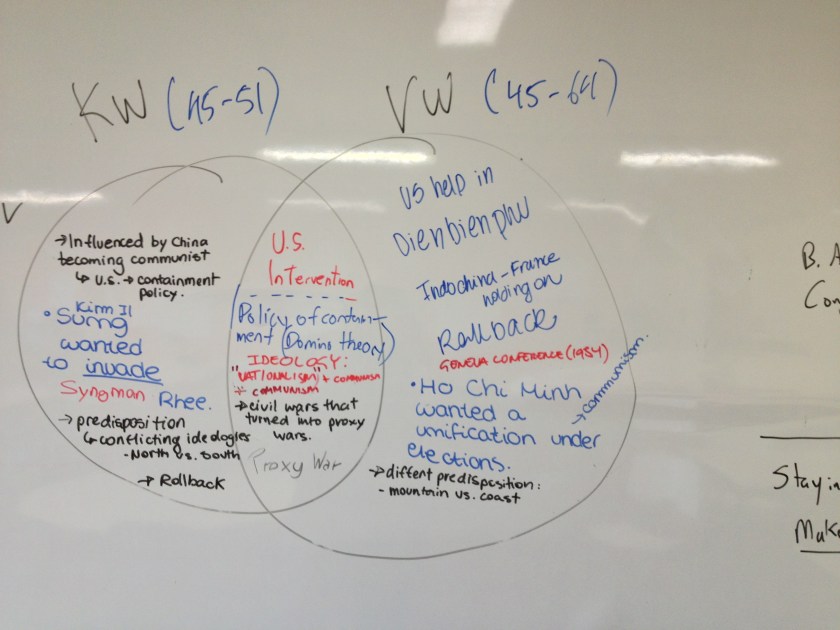 KW (45-51)
VW (45-64)
V
→ Influenced by China
becoming communist
↳ U.S. → containment
policy.
Kim Il
• Sung
wanted
to invade
Syngman Rhee.
→ predisposition
↳ conflicting ideologies
- North vs. South
→ Rollback
U.S.
Intervention
Policy of contain-
ment (Domino theory)
IDEOLOGY:
"NATIONALISM" + COMMUNISM
* COMMUNISM
→ civil wars that
turned into proxy
wars.
Proxy War
US help in
Dienbienphu
Indochina - France
holding on
Rollback
GENEVA CONFERENCE (1954)
• Ho Chi Minh
wanted a
unification under
elections.
→ communism.
→ diffent predisposition:
- mountain vs. coast
B. A
Con
Stayin
Make